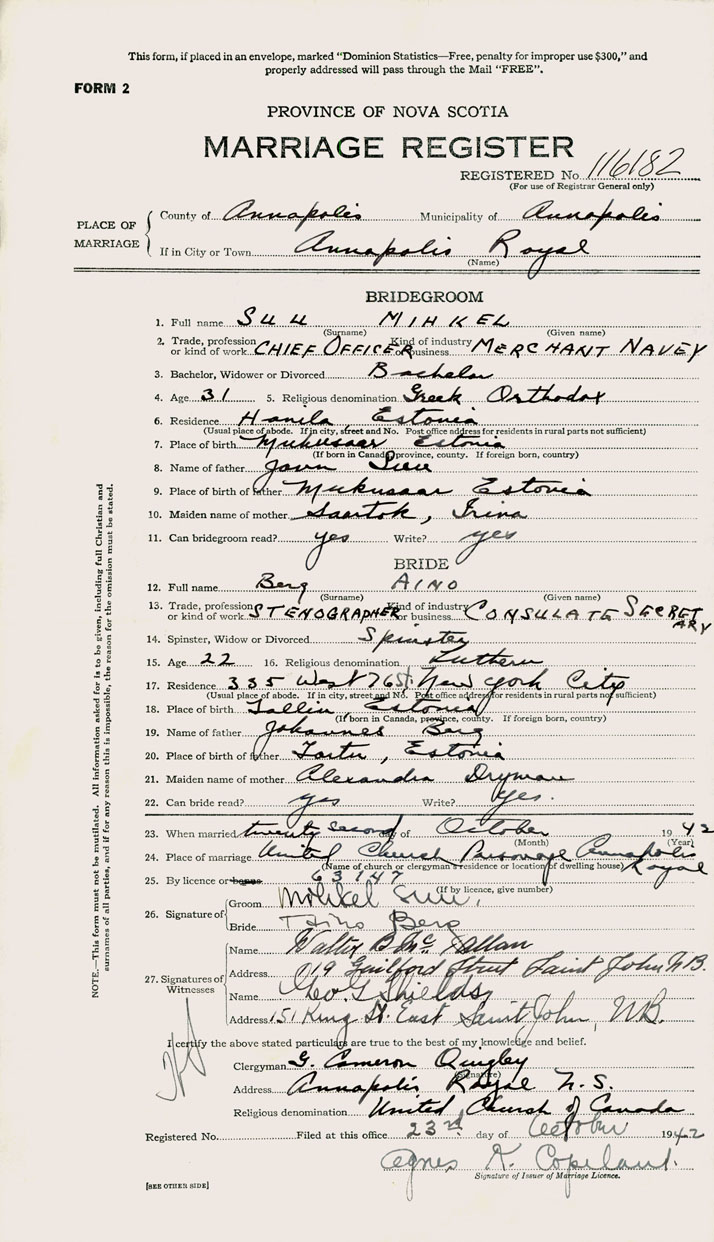 This form, if placed in an envelope, marked "Dominion Statistics—Free, penalty for improper use $300," and
properly addressed will pass through the Mail "FREE".
FORM 2
PROVINCE OF NOVA SCOTIA
MARRIAGE REGISTER
REGISTERED No. 116182
(For use of Registrar General only)
PLACE OF MARRIAGE
County of Annapolis Municipality of Annapolis
If in City or Town Annapolis Royal
(Name)
BRIDEGROOM
1. Full name SUU MIHKEL
(Surname) (Given name)
2. Trade, profession or kind of work CHIEF OFFICER Kind of industry or business MERCHANT NAVEY
3. Bachelor, Widower or Divorced Bachelor
4. Age 31 5. Religious denomination Greek Orthodox
6. Residence Hanila, Estonia
(Usual place of abode. If in city, street and No. Post office address for residents in rural parts not sufficient)
7. Place of birth Mukusaar Estonia
(If born in Canada, province, county. If foreign born, country)
8. Name of father Jaan Suu
9. Place of birth of father Mukusaar Estonia
10. Maiden name of mother Saartok, Irina
11. Can bridegroom read? yes Write? yes
BRIDE
12. Full name Berg AINO
(Surname) (Given name)
13. Trade, profession or kind of work STENOGRAPHER Kind of industry or business CONSULATE SECRETARY
14. Spinster, Widow or Divorced Spinster
15. Age 22 16. Religious denomination Luthern
17. Residence 335 West 76 St. New York City
(Usual place of abode. If in city, street and No. Post office address for residents in rural parts not sufficient)
18. Place of birth Tallin Estonia
(If born in Canada, province, county. If foreign born, country)
19. Name of father Johannes Berg
20. Place of birth of father Tartu, Estonia
21. Maiden name of mother Alexandra Dryman
22. Can bride read? yes Write? yes.
23. When married twenty second day of October 1942
(Month) (Year)
24. Place of marriage United Church Parsonage Annapolis Royal
(Name of church or clergyman's residence or location of dwelling house)
25. By licence or banns 63147
(If by licence, give number)
26. Signature of
Groom Mihkel Suu,
Bride Aino Berg
27. Signatures of Witnesses
Name Walter B. Mc
Address 019 Guilford Street Saint John N.B.
Name Geo. G Shields
Address 151 King St. East Saint John, N.B.
I certify the above stated particulars are true to the best of my knowledge and belief.
Clergyman G. Cameron Quigley
(Signature)
Address Annapolis Royal N.S.
Religious denomination United Church of Canada
Registered No. Filed at this office 23rd day of October 1942
Agnes K. Copeland.
Signature of Issuer of Marriage Licence.
[SEE OTHER SIDE]
NOTE.—This form must not be mutilated. All information asked for is to be given, including full Christian and
surnames of all parties, and if for any reason this is impossible, the reason for the omission must be stated.